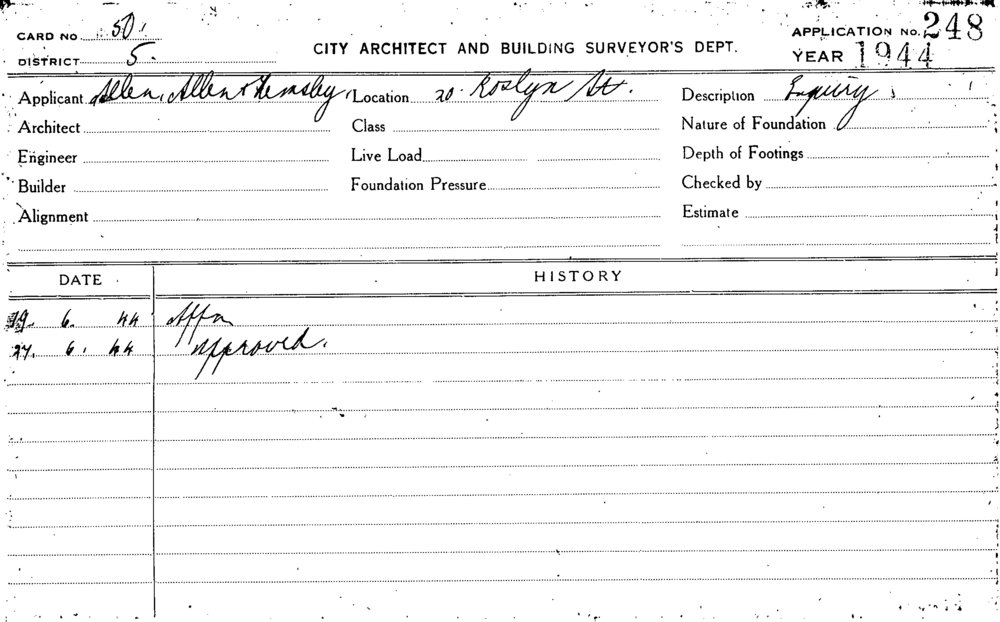 CARD No. 50.
APPLICATION No. 248
DISTRICT 5.
CITY ARCHITECT AND BUILDING SURVEYOR'S DEPT.
YEAR 1944
Applicant Allen, Allen & Hemsley. Location 20. Roslyn St. Description Enquiry
Architect Class Nature of Foundation
Engineer Live Load Depth of Footings
Builder Foundation Pressure Checked by
Alignment Estimate
DATE HISTORY
19. 6. 44
27. 6. 44 Approved.